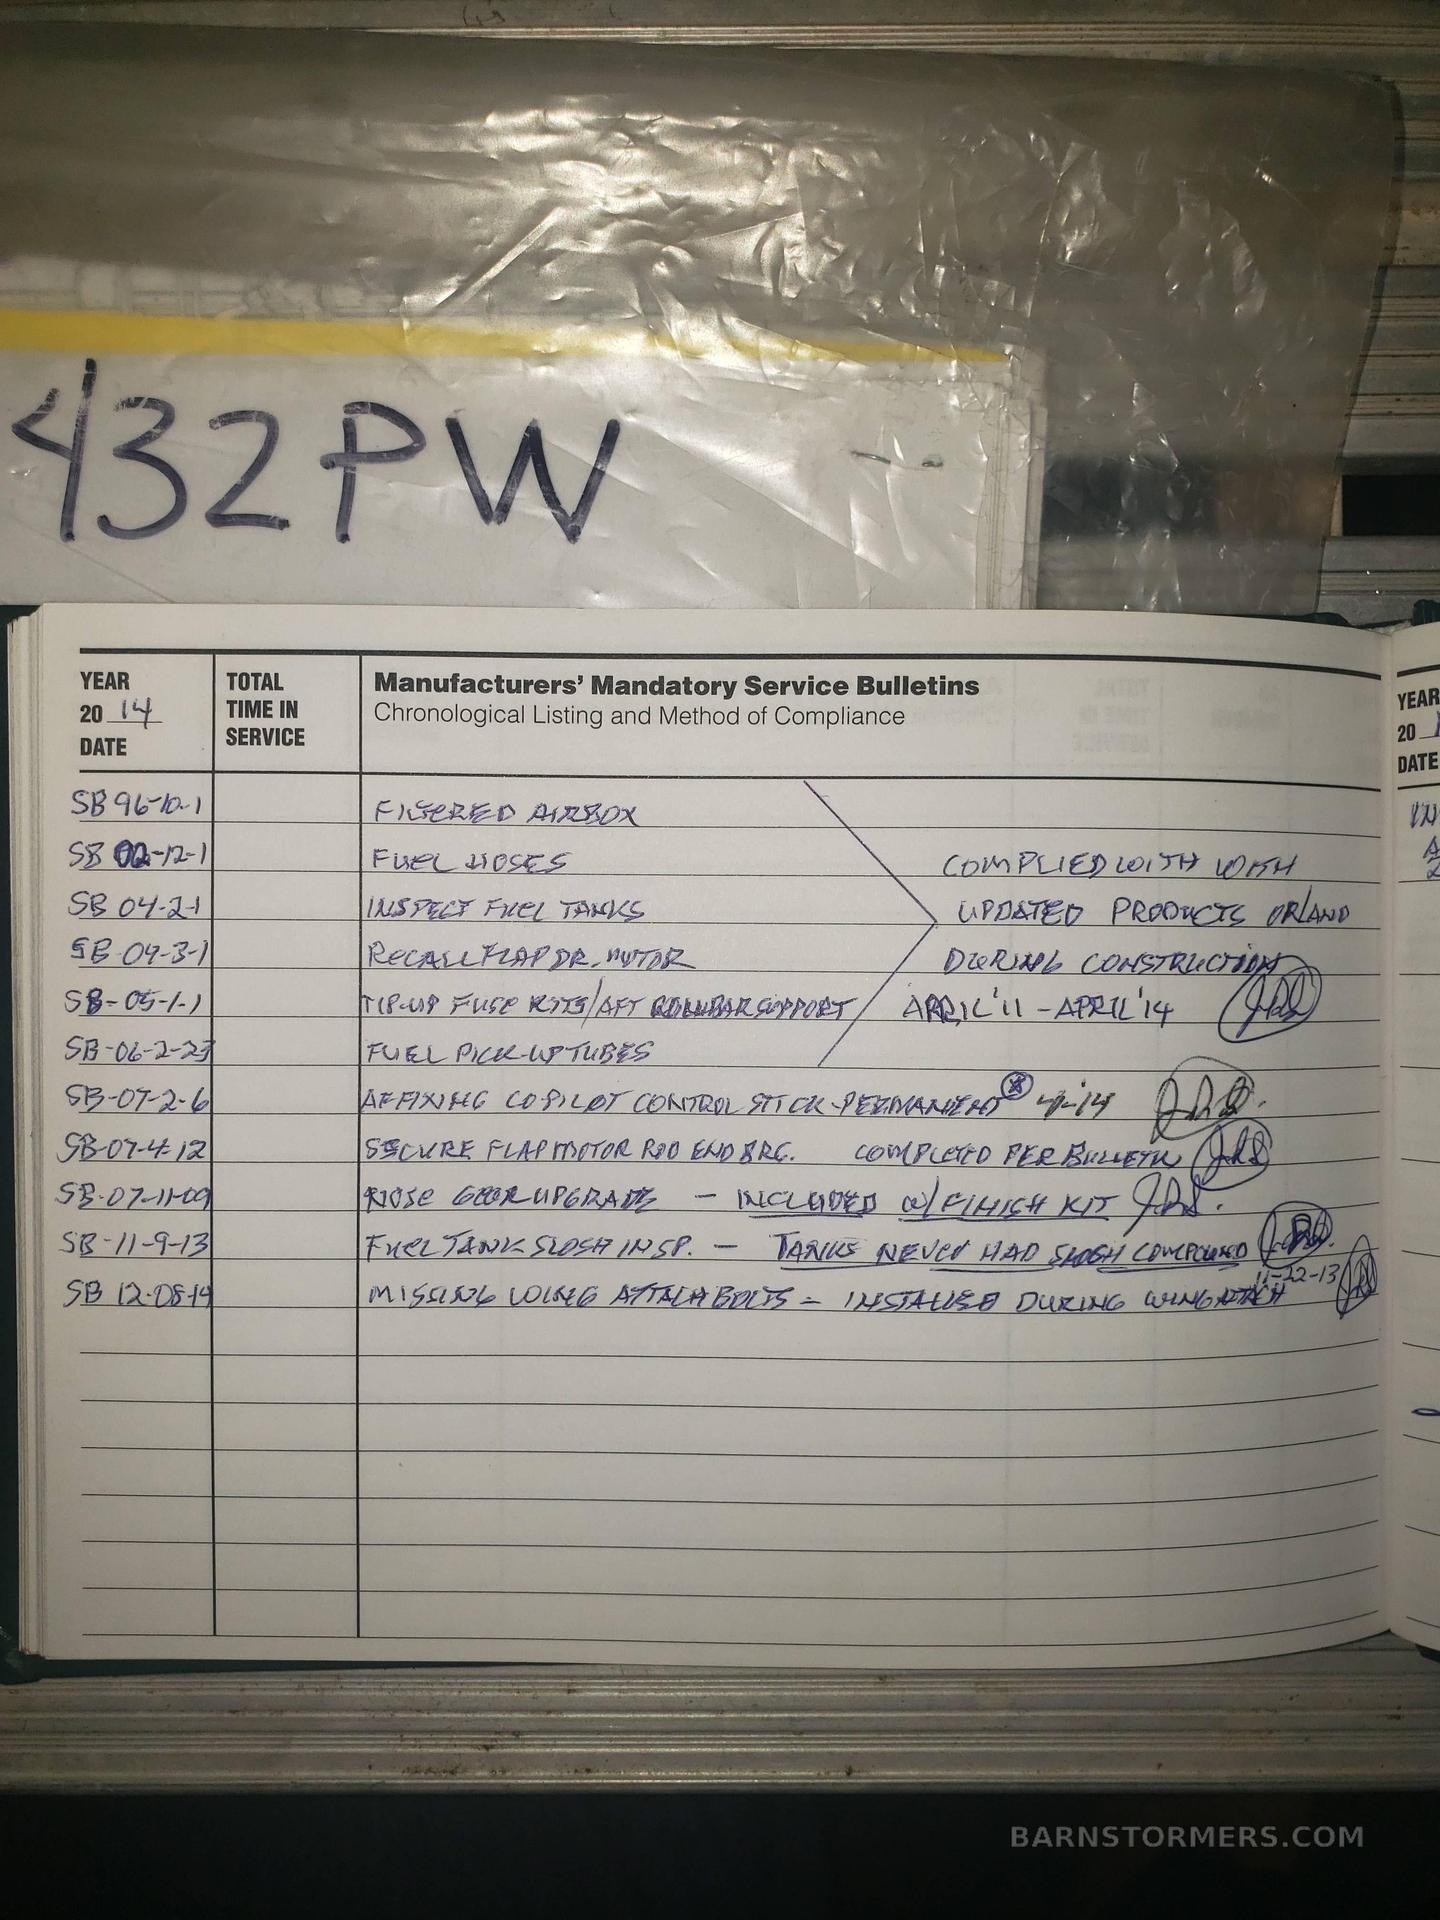 432PW
YEAR
20 14
DATE
TOTAL
TIME IN
SERVICE
Manufacturers' Mandatory Service Bulletins
Chronological Listing and Method of Compliance
SB 96-10-1 FILTERED AIRBOX
SB 02-12-1 FUEL HOSES COMPLIED WITH WITH
SB 04-2-1 INSPECT FUEL TANKS UPDATED PRODUCTS OR/AND
SB-04-3-1 RECALL FLAP DR. MOTOR DURING CONSTRUCTION
SB-05-1-1 TIP-UP FUSE KITS/AFT ROLLBAR SUPPORT APRIL '11 - APRIL '14
SB-06-2-23 FUEL PICK-UP TUBES
SB-07-2-6 AFFIXING CO-PILOT CONTROL STICK-PERMANENT
SB-07-4-12 SECURE FLAP MOTOR ROD END BRG. COMPLETED PER BULLETIN
SB-07-11-09 NOSE GEAR UPGRADE - INCLUDED W/ FINISH KIT
SB-11-9-13 FUEL TANK SLOSH INSP. - TANKS NEVER HAD SLOSH COMPOUND
11-22-13
SB 12-08-14 MISSING WING ATTACH BOLTS - INSTALLED DURING WING ATTACH
YEAR
20
DATE
BARNSTORMERS.COM